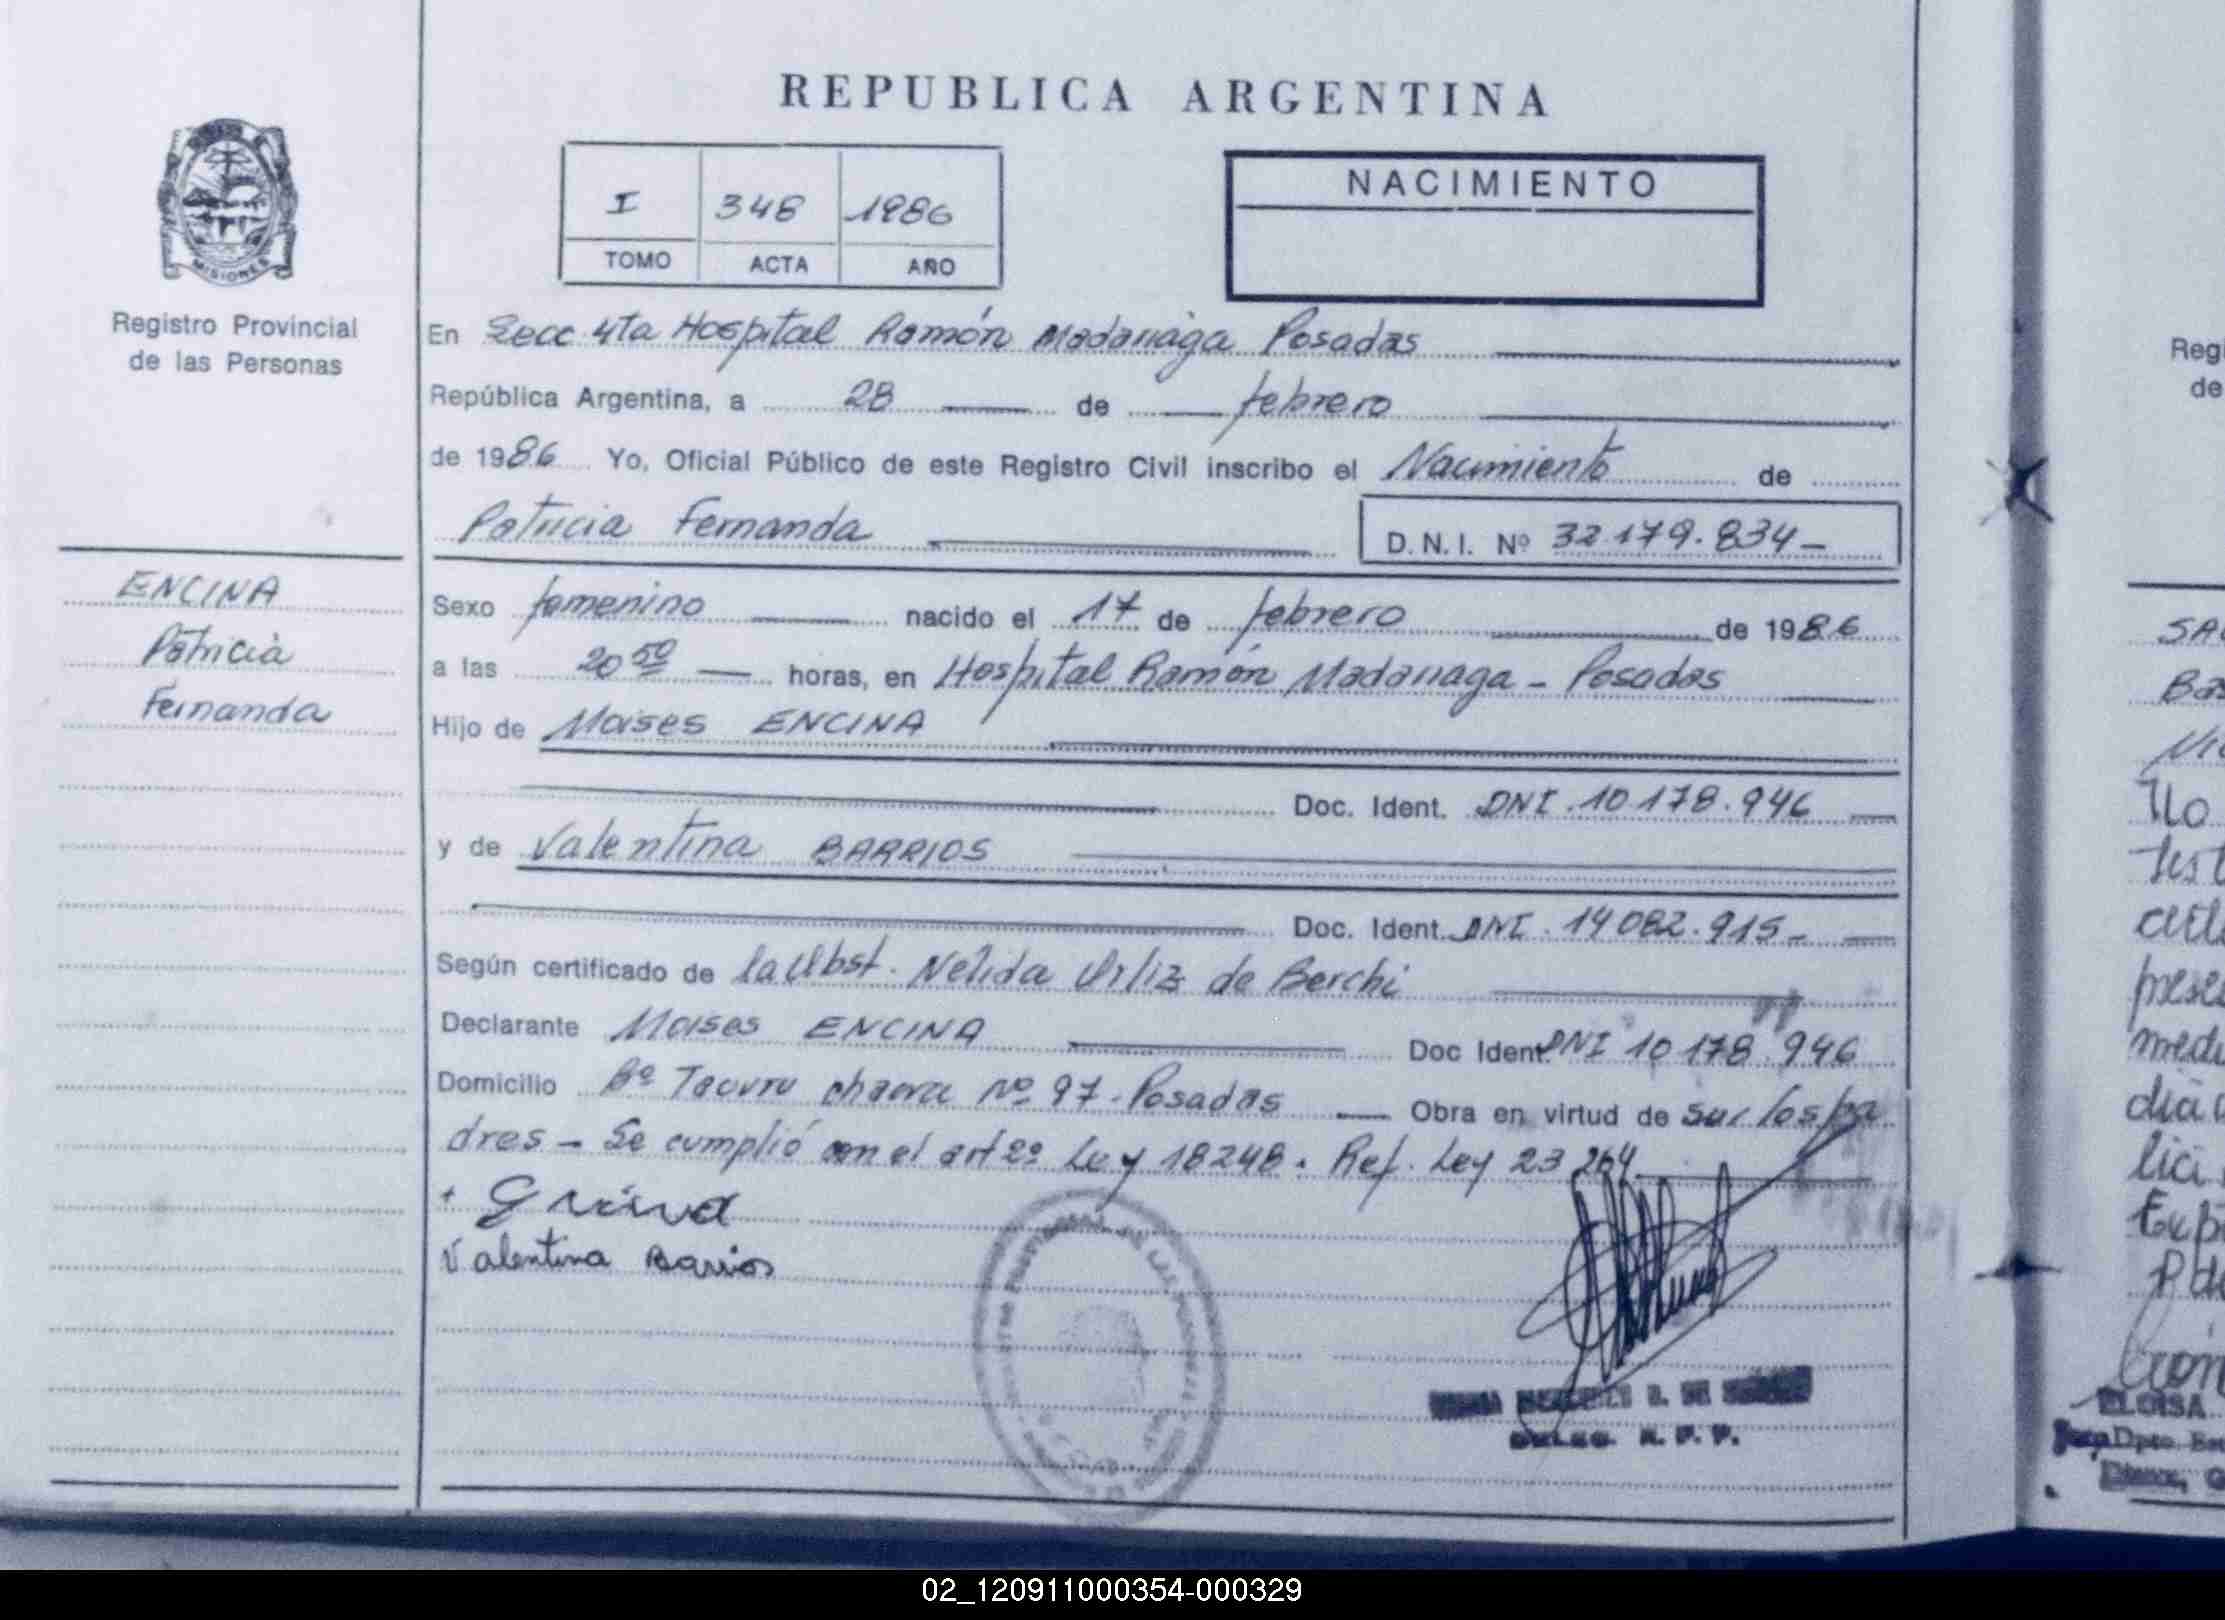 REPUBLICA ARGENTINA
MISIONES
Registro Provincial
de las Personas
I 348 1986
TOMO ACTA AÑO
NACIMIENTO
En Secc 4ta Hospital Ramón Madariaga Posadas
República Argentina, a 28 de febrero
de 1986 Yo, Oficial Público de este Registro Civil inscribo el Nacimiento de
Patricia Fernanda D.N.I. Nº 32.179.834-
ENCINA
Patricia
Fernanda
Sexo femenino nacido el 17 de febrero de 1986
a las 20 50 horas, en Hospital Ramón Madariaga - Posadas
Hijo de Moises ENCINA
Doc. Ident. DNI. 10.178.946
y de Valentina BARRIOS
Doc. Ident. DNI. 14.082.915-
Según certificado de la Obst. Nelida Ortiz de Berchi
Declarante Moises ENCINA Doc Ident. DNI 10.178.946
Domicilio Bº chacra Nº 97 - Posadas Obra en virtud de ser los pa
dres - Se cumplió con el art 2º Ley 18248. Ref. Ley 23.264
Valentina Barrios
R. P. P.
Regi
de
ELOISA
Dpto.
02_120911000354-000329